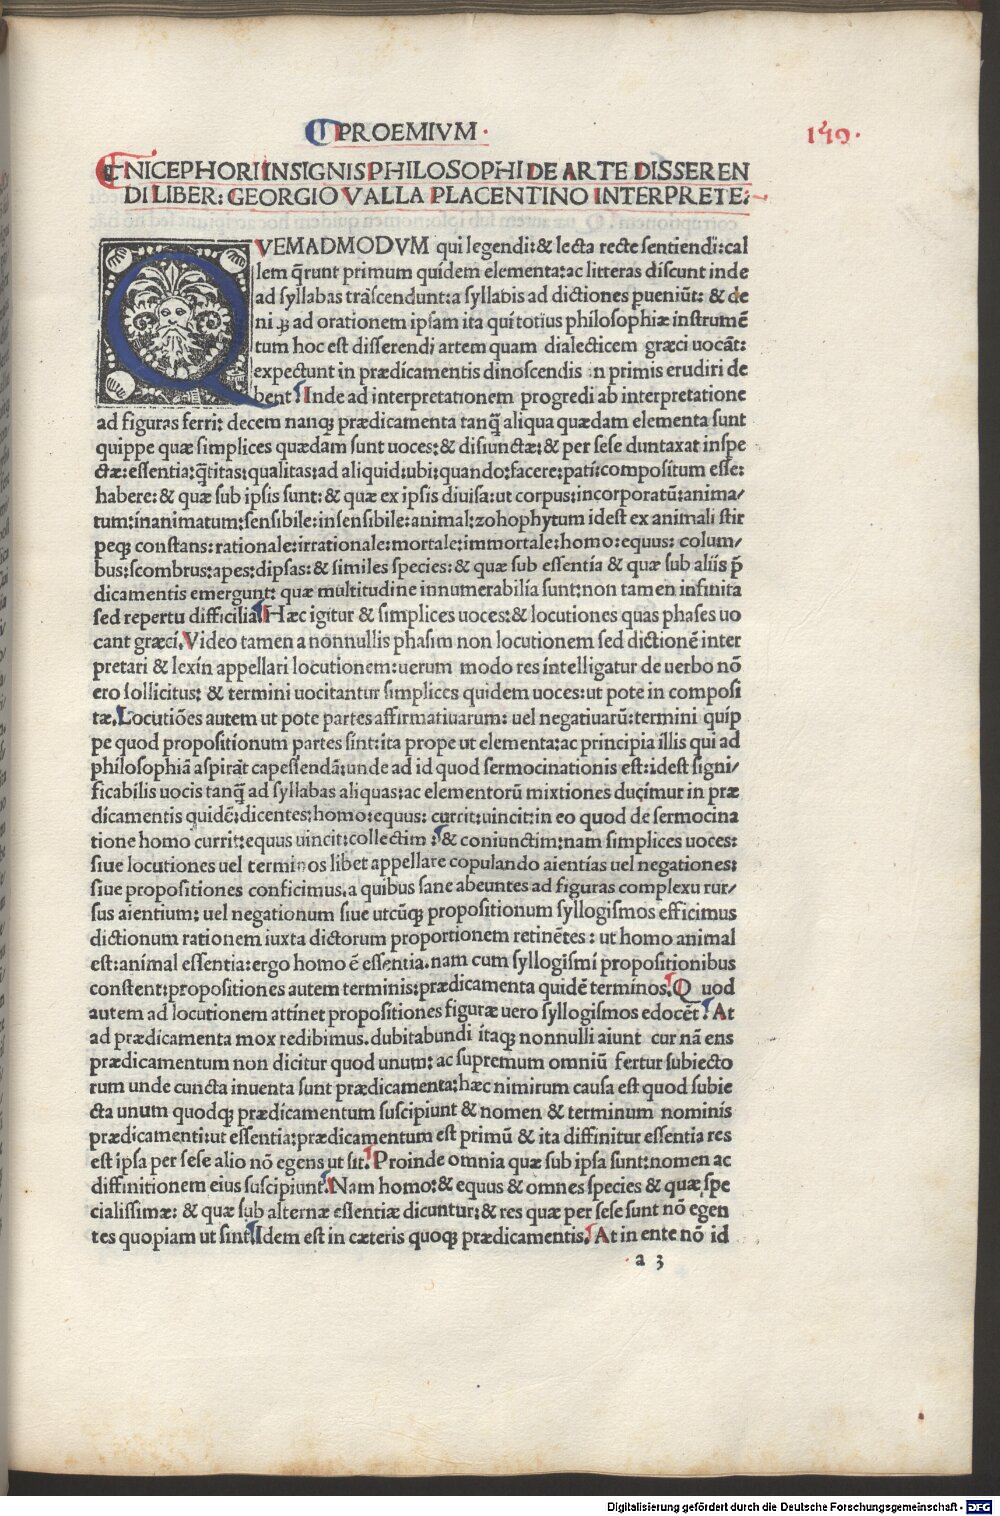 PROEMIVM.
149.
NICEPHORI INSIGNIS PHILOSOPHI DE ARTE DISSEREN
DI LIBER: GEORGIO VALLA PLACENTINO INTERPRETE:
QVEMADMODVM qui legendi:& lecta recte sentiendi:cal
lem q̃runt primum quidem elementa:ac litteras discunt inde
ad syllabas trãscendunt:a syllabis ad dictiones ꝑueniũt: & de
niqꝫ ad orationem ipsam ita qui totius philosophiæ instrumẽ
tum hoc est disserendi artem quam dialecticem græci uocãt:
expectunt in prædicamentis dinoscendis in primis erudiri de
bent. Inde ad interpretationem progredi ab interpretatione
ad figuras ferri: decem nanqꝫ prædicamenta tanq̃ aliqua quædam elementa sunt
quippe quæ simplices quædam sunt uoces:& disiunctæ:& per sese duntaxat inspe
ctæ:essentia:q̃titas:qualitas:ad aliquid:ubi:quando:facere:pati:compositum esse:
habere:& quæ sub ipsis sunt:& quæ ex ipsis diuisa:ut corpus:incorporatũ:anima/
tum:inanimatum:sensibile:insensibile:animal:zohophytum idest ex animali stir
peqꝫ constans:rationale:irrationale:mortale:immortale:homo:equus: colum/
bus:scombrus:apes:dipsas:& similes species:& quæ sub essentia & quæ sub aliis p̃
dicamentis emergunt: quæ multitudine innumerabilia sunt:non tamen infinita
sed repertu difficilia. Hæc igitur & simplices uoces:& locutiones quas phases uo
cant græci. Video tamen a nonnullis phasim non locutionem sed dictionẽ inter
pretari & lexin appellari locutionem:uerum modo res intelligatur de uerbo nõ
ero sollicitus: & termini uocitantur simplices quidem uoces:ut pote in composi
tæ. Locutiões autem ut pote partes affirmatiuarum: uel negatiuarũ:termini quip
pe quod propositionum partes sint:ita prope ut elementa:ac principia illis qui ad
philosophiã aspirãt capessendã:unde ad id quod sermocinationis est:idest signi/
ficabilis uocis tanq̃ ad syllabas aliquas:ac elementorũ mixtiones ducimur in præ
dicamentis quidẽ:dicentes:homo:equus: currit:uincit:in eo quod de sermocina
tione homo currit:equus uincit:collectim : & coniunctim:nam simplices uoces:
siue locutiones uel terminos libet appellare copulando aientias uel negationes:
siue propositiones conficimus.a quibus sane abeuntes ad figuras complexu rur/
sus aientium: uel negationum siue utcũqꝫ propositionum syllogismos efficimus
dictionum rationem iuxta dictorum proportionem retinẽtes : ut homo animal
est:animal essentia:ergo homo ẽ essentia.nam cum syllogismi propositionibus
constent:propositiones autem terminis:prædicamenta quidẽ terminos. Quod
autem ad locutionem attinet propositiones figuræ uero syllogismos edocẽt. At
ad prædicamenta mox redibimus.dubitabundi itaqꝫ nonnulli aiunt cur nã ens
prædicamentum non dicitur quod unum: ac supremum omniũ fertur subiecto
rum unde cuncta inuenta sunt prædicamenta:hæc nimirum causa est quod subie
cta unum quodqꝫ prædicamentum suscipiunt & nomen & terminum nominis
prædicamenti:ut essentia:prædicamentum est primũ & ita diffinitur essentia res
est ipsa per sese alio nõ egens ut sit. Proinde omnia quæ sub ipsa sunt:nomen ac
diffinitionem eius suscipiunt. Nam homo:& equus & omnes species & quæ spe
cialissimæ: & quæ sub alternæ essentiæ dicuntur:& res quæ per sese sunt nõ egen
tes quopiam ut sint. Idem est in cæteris quoqꝫ prædicamentis. At in ente nõ id
a 3
Digitalisierung gefördert durch die Deutsche Forschungsgemeinschaft - DFG